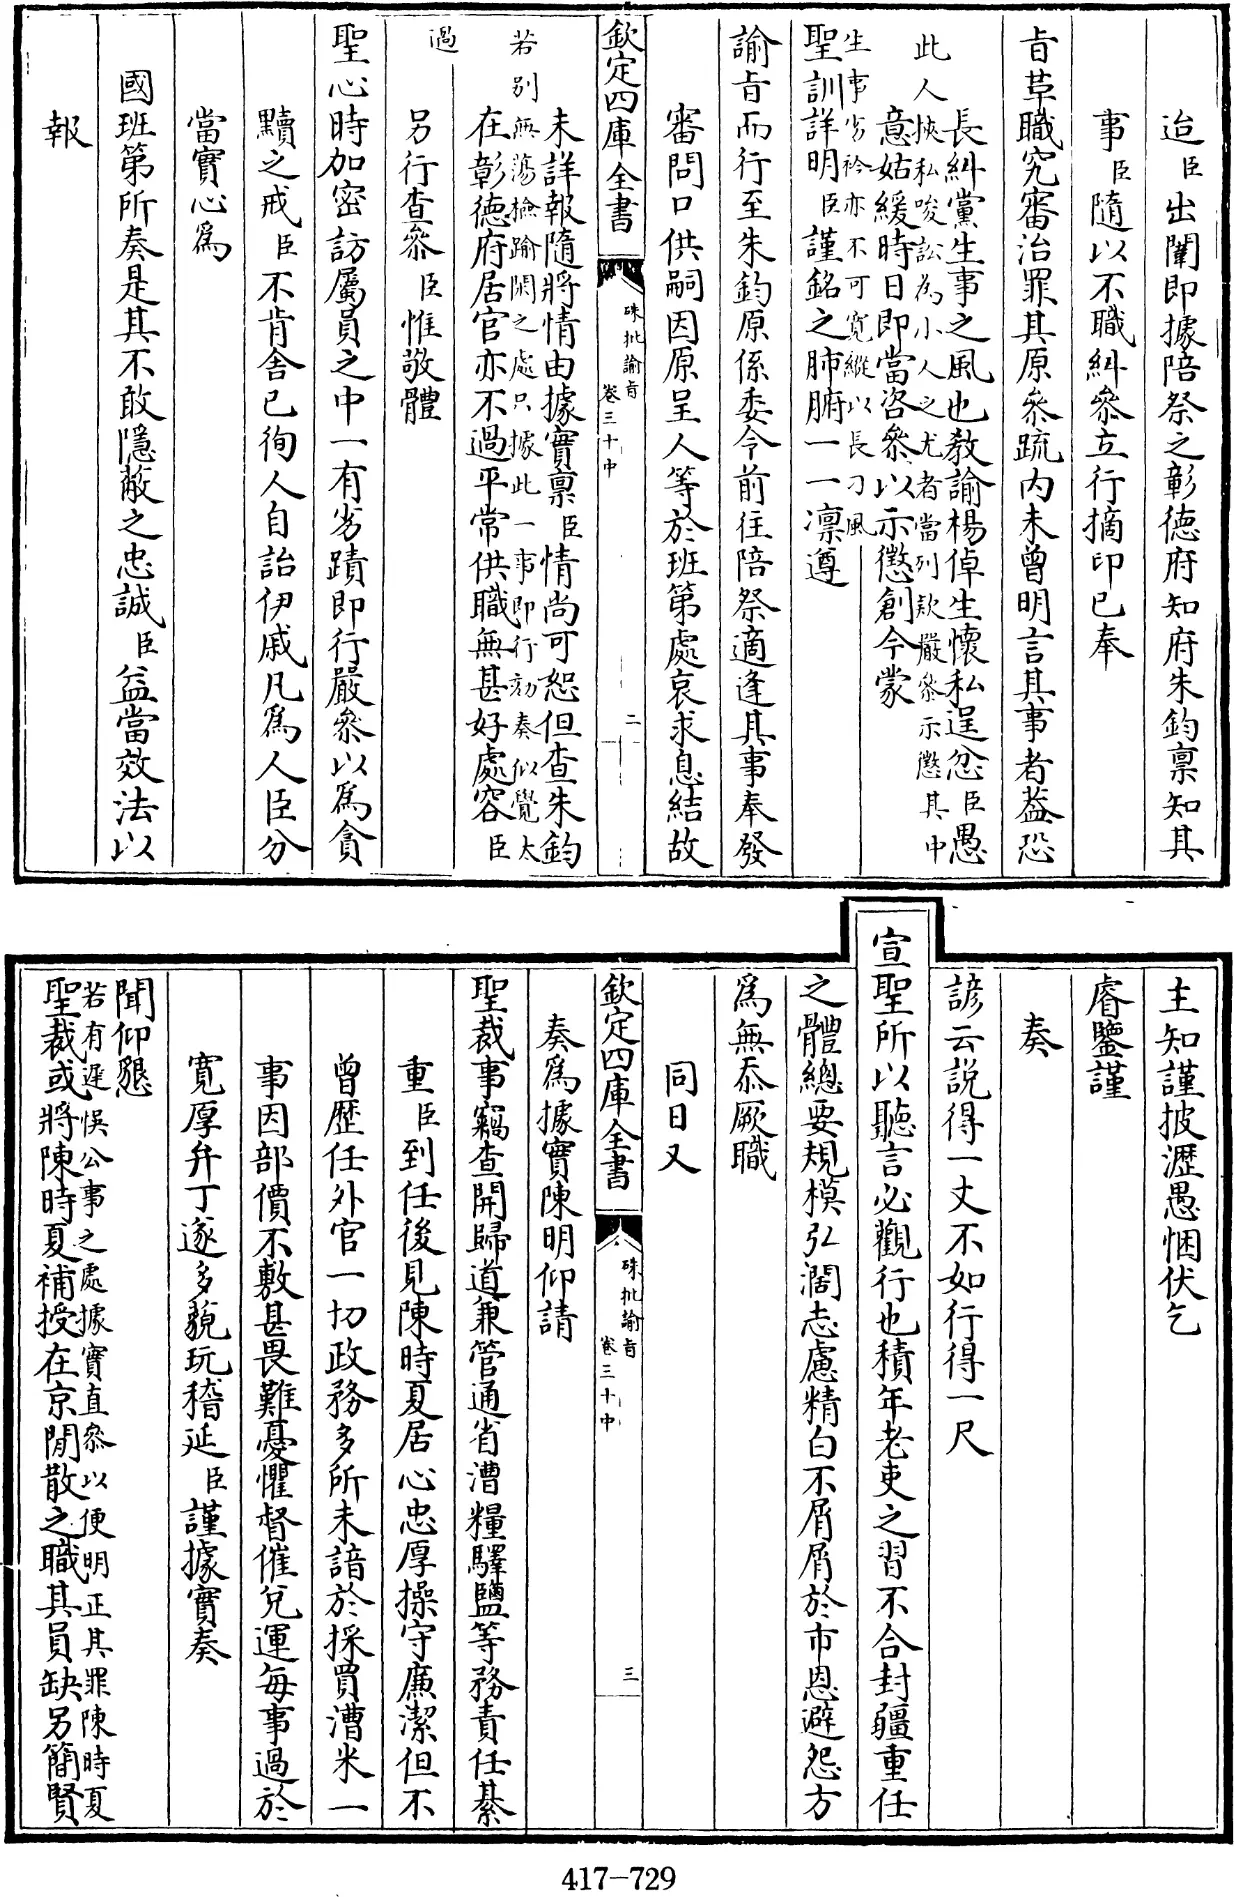 迨臣出闈即據陪祭之彰徳府知府朱鈞禀知其
事臣隨以不職糾叅立行摘印已奉
㫖革職究審治罪其原叅疏内未曾明言其事者葢恐
長糾黨生事之風也教諭楊倬生懷私逞忿臣愚
此人挾私唆訟為小人之尤者當列款嚴叅示懲其中
意姑緩時日即當咨叅以示懲創今蒙
生事劣衿亦不可寛縱以長刁風
聖訓詳明臣謹銘之肺腑一一凛遵
諭㫖而行至朱鈞原係委令前往陪祭適逢其事奉發
審問口供嗣因原呈人等於班第處哀求息結故
欽定四庫全書
硃批諭㫖
卷三十中
二
未詳報隨將情由據實禀臣情尚可恕但查朱鈞
若别無蕩檢踰閑之處只據此一事即行劾奏似覺太
在彰徳府居官亦不過平常供職無甚好處容臣
過
另行查叅臣惟敬體
聖心時加密訪屬員之中一有劣蹟即行嚴叅以爲貪
黷之戒臣不肯舍已徇人自詒伊戚凡爲人臣分
當實心爲
國班第所奏是其不敢隱蔽之忠誠臣益當效法以
報
主知謹披瀝愚悃伏乞
睿鑒謹
奏
諺云説得一丈不如行得一尺
宣聖所以聽言必觀行也積年老吏之習不合封疆重任
之體總要規模弘濶志慮精白不屑屑於市恩避怨方
爲無忝厥職
同日又
欽定四庫全書
硃批諭㫖
卷三十中
三
奏爲據實陳明仰請
聖裁事竊查開歸道兼管通省漕糧驛鹽等務責任綦
重臣到任後見陳時夏居心忠厚操守廉潔但不
曾歴任外官一切政務多所未諳於採買漕米一
事因部價不敷甚畏難憂懼督催兌運每事過於
寛厚弁丁遂多藐玩稽延臣謹據實奏
聞仰懇
若有遲悞公事之處據實直叅以便明正其罪陳時夏
聖裁或將陳時夏補授在京閒散之職其員缺另簡賢
417-729